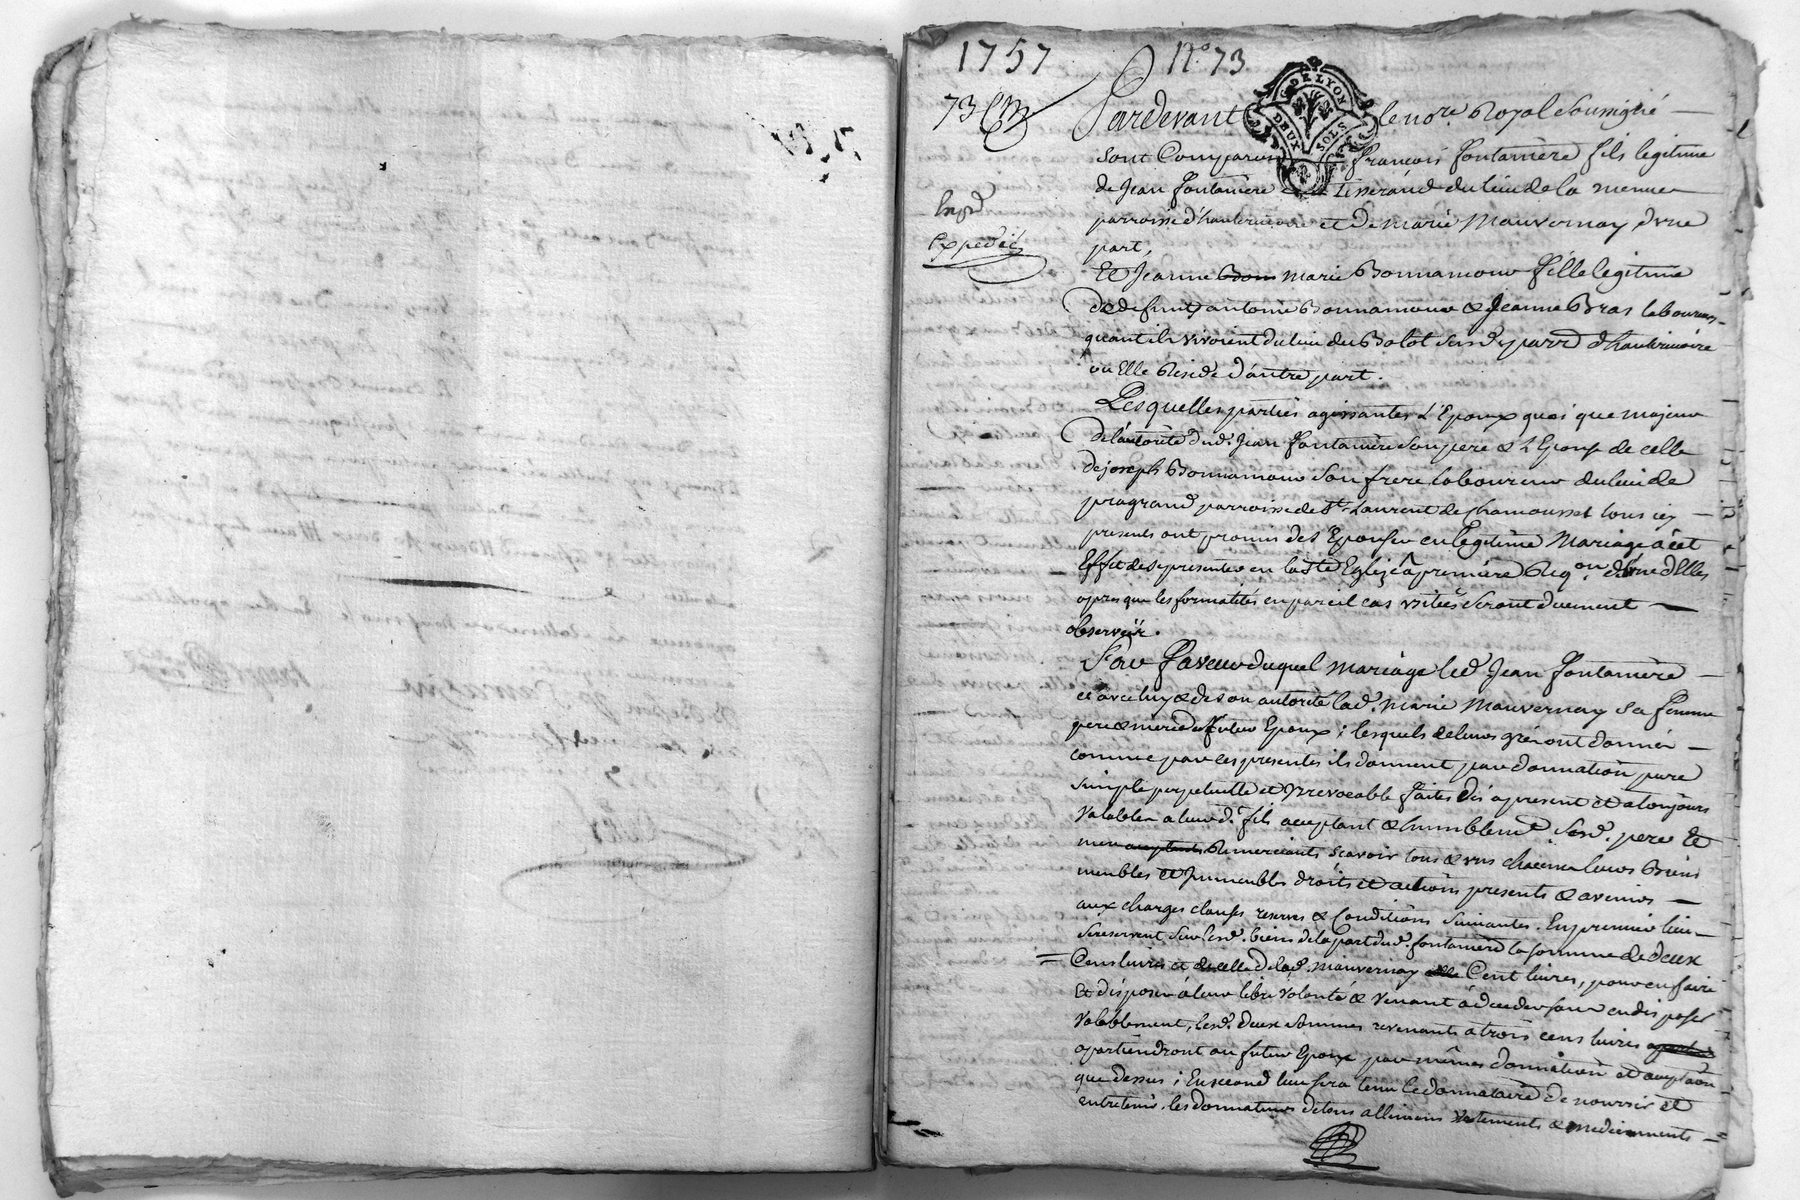 1757 N.° 73
73 Cm
G. DE LYON
DEUX SOLS
Pardevant le no.re Royal Soussigné
Sont Comparus françois fontaniere fils legitime
de Jean fontaniere tisserand du lieu de la menue
parroisse d'hauterivoire et de marie Mauvernay d'vne
part,
expedié
Et Jeanne marie Bonnamour fille legitime
de defunts antoine Bonnamour & Jeanne Bras laboureurs
quant ils vivoient du lieu du Bolot Susd. parr. d'hauterivoire
ou Elle Reside d'autre part.
Lesquelles parties agissantes L'Epoux quoi que majeur
de l'autorité dud. Jean fontaniere son pere & L'Epouse de celle
de joseph Bonnamour Son frere laboureur du lieu de
pragrand parroisse de St. Laurent de Chamousset tous icy
presents ont promis de s'Epouser en legitime Mariage a cet
Effet de se presenter en la Ste Eglize a premiere Req.on d'vne d'Elles
apres que les formalités en pareil cas vsitées seront duement
observées.
En faveur duquel Mariage led. Jean fontaniere
et avec luy & de son autorité lad. marie Mauvernay sa femme
pere & mere du futur Epoux ; lesquels de leurs grés ont donné
comme par ces presentes ils donnent par donnation pure
simple perpetuelle et irrevocable faites dés apresent et a toujours
valable a leurd. fils acceptant & humblem.t Sesd. pere Et
mere Remerciants scavoir tous & vns chacuns leurs Biens
meubles et Immeubles droits et actions presents & avenirs
aux charges clauses reserves & Conditions Suivantes. En premier lieu
se reservent sur lesd. biens de la part dud. fontaniere la somme de deux
Cens livres et de celle de lad. Mauvernay Cent livres, pour en faire
Et disposer à leur libre volonté & venant à deceder sans en disposer
valablement, lesd. deux sommes revenants a trois cens livres
apartiendront au futur Epoux par même donnation et acceptaon
que dessus ; En second lieu sera tenu le donnataire de nourrir et
entretenir les donnateurs de tous allimens vestements & medicaments